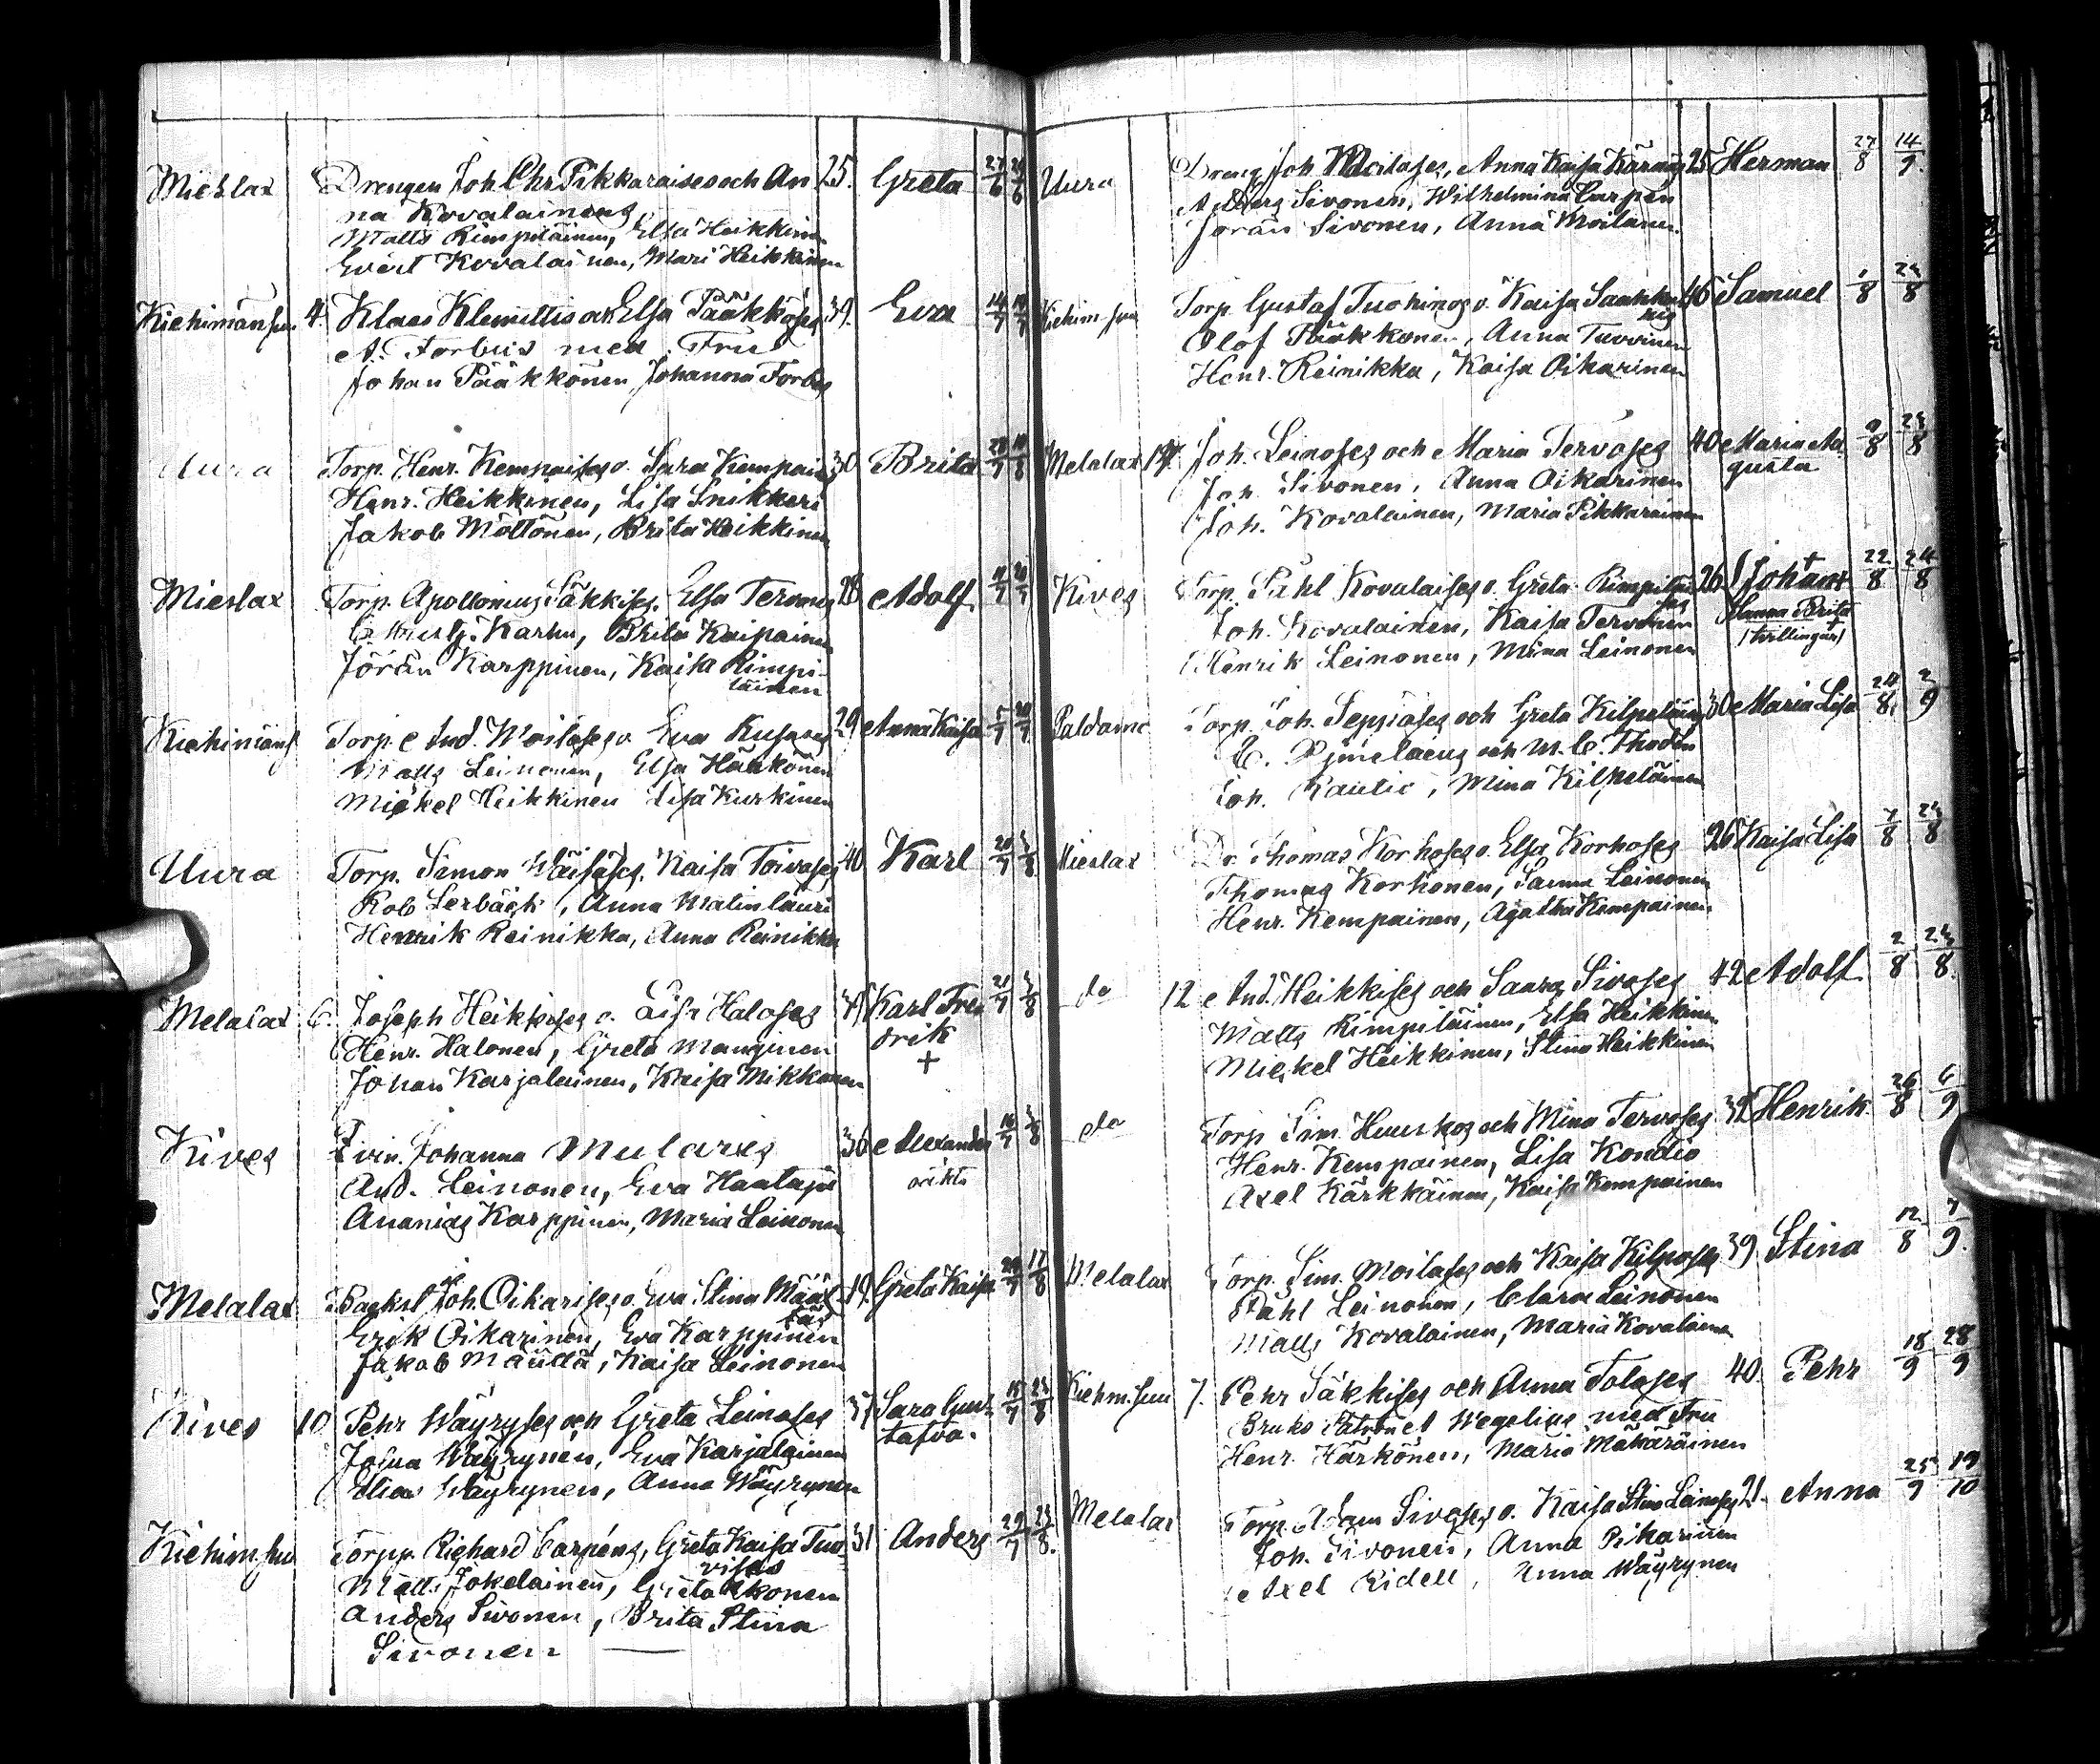 Mieslax Drengen Joh Chr Pikkaraises och An 25. Greta 27/6 28/6
na Kovalainens
Matts Rimpiläinen, Elsa Heikkinen
Evert Kovalainen, Mari Heikkinen
4. Klaes Klemettis och Elsa Pääkköses 39. Eva 14/7
A. Forbus med Fru
Johan Pääkkönen, Johanna Forbus
Uura Torp. Henr. Kempaises o. Sara Kempais 30 Brita 28/7 10/8
Henr. Heikkinen, Lisa Snikkeri
Jakob Möttönen, Brita Heikkinen
Mieslax Torp. Apollonius Säkkises, Elsa Tervoses 28 Adolf
Karhu, Brita Kaipainen
Jöran Karppinen, Kaisa Rimpi-
läinen
Torp. And. Moilases o. Eva 29 Anna Kaisa
Matts Leinonen, Elsa Härkönen
Mickel Heikkinen Lisa Kurkinen
Uura Torp. Simon Wäisäses, Kaisa Toivoses 40 Karl 20/7
Rob Lerbäck, Anna Matinlauri
Henrik Reinikka, Anna Reinikka
Melalax 6. Joseph Heikkises o. Lisa Haloses Karl Fred
Henr. Halonen, Greta Manginen drik
Johan Karjalainen, Kaisa Mikkonen +
Kives Johanna Mularis 36 Alexander 16/7
And. Leinonen, Eva Haataja oäkta
Ananias Karppinen, Maria Leinonen
Melalax Joh. Oikarises o. Eva Stina Määt 19. Greta Kaisa 24/7 17/8
täs
Erik Oikarinen, Eva Karppinen
Jakob Määttä, Kaisa Leinonen
Kives 10 Pehr Wäyryses och Greta Leinoses 37 Sara Gus- 15/7 23/8
Johan Wäyrynen, Eva Karjalainen tafva.
Elias Wäyrynen, Anna Wäyrynen
Kiehim.suu Torpp. Richard Carpéns, Greta Kaisa Tuo 31 Anders 29/7 23/8.
vises
Matts Jokelainen, Greta
Anders Sivonen, Brita Stina
Sivonen
Uura Dreng Joh Moilases, Anna Kaisa 25 Herman 27/8 14/9.
Anders Sivonen, Wilhelmina Carpén
Jöran Sivonen, Anna Moilanen.
Kiehim.suu Torp. Gustaf Tuohinos o. Kaisa 46 Samuel 1/8 24/8
Olof Pääkkönen, Anna Tuovinen
Henr. Reinikka, Kaisa Oikarinen
Melalax Joh. Leinoses och Maria Tervoses 40 Maria Au
Joh. Sivonen, Anna Oikarinen gusta
Joh. Kovalainen, Maria Pikkarainen
Kives Torp. Påhl Kovalaises o. Greta Rimpiläi 26 Johan + 22/8 24/8
ses
Joh. Kovalainen, Kaisa Tervonen Hanna Brita +
Henrik Leinonen, Mina Leinonen (tvillingar)
Paldamo Torp. Joh. Seppäses och Greta Kilpeläises 30 Maria Lisa 24/8. 2/9
och M. C. Thodén
Joh. Rautio, Mina Kilpeläinen
Mieslax Dr. Thomas Korhoses o. Elsa Korhoses 26 Kaisa Lisa 7/8 24/8
Thomas Korhonen, Sanna Leinonen
Henr. Kempainen, Agatha Kempainen
do 12 And. Heikkises och Saara Sivoses 42 Adolf 2/8 24/8.
Matts Rimpiläinen, Elsa Heikkinen
Mickel Heikkinen, Stina Heikkinen
do Torp. Sim. Huuskos och Mina Tervoses 32 Henrik 26/8 6/9
Henr. Kempainen, Lisa Kontio
Axel Kärkkäinen, Kaisa Kempainen
Melalax Torp. Sim. Moilases och Kaisa Kilposes 39 Stina 12/8 7/9.
Påhl Leinonen, Clara Leinonen
Matts Kovalainen, Maria Kovalainen
Kiehim.suu 7. Pehr Säkkises och Anna Tolases 40 Pehr 18/9 28/9
Bruks Patron A Wegelius med Fru
Henr. Härkönen, Maria Mäkäräinen
Melalax Torp. Adam Sivoses o. Kaisa Stina Leinoses 21. Anna 25/9 19/10
Joh. Sivonen, Anna Pikarinen
Axel Ridell, Anna Wäyrynen